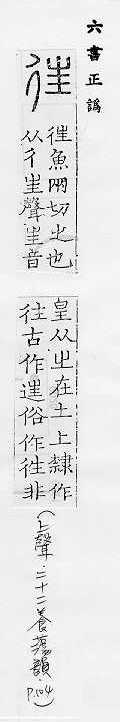 六書正譌
𢓸
𢓸魚网切之也
从彳㞷聲㞷音
皇从㞢在土上隸作
往古作𨓹俗作徃非
(上聲．二十二養蕩韻．P.104)